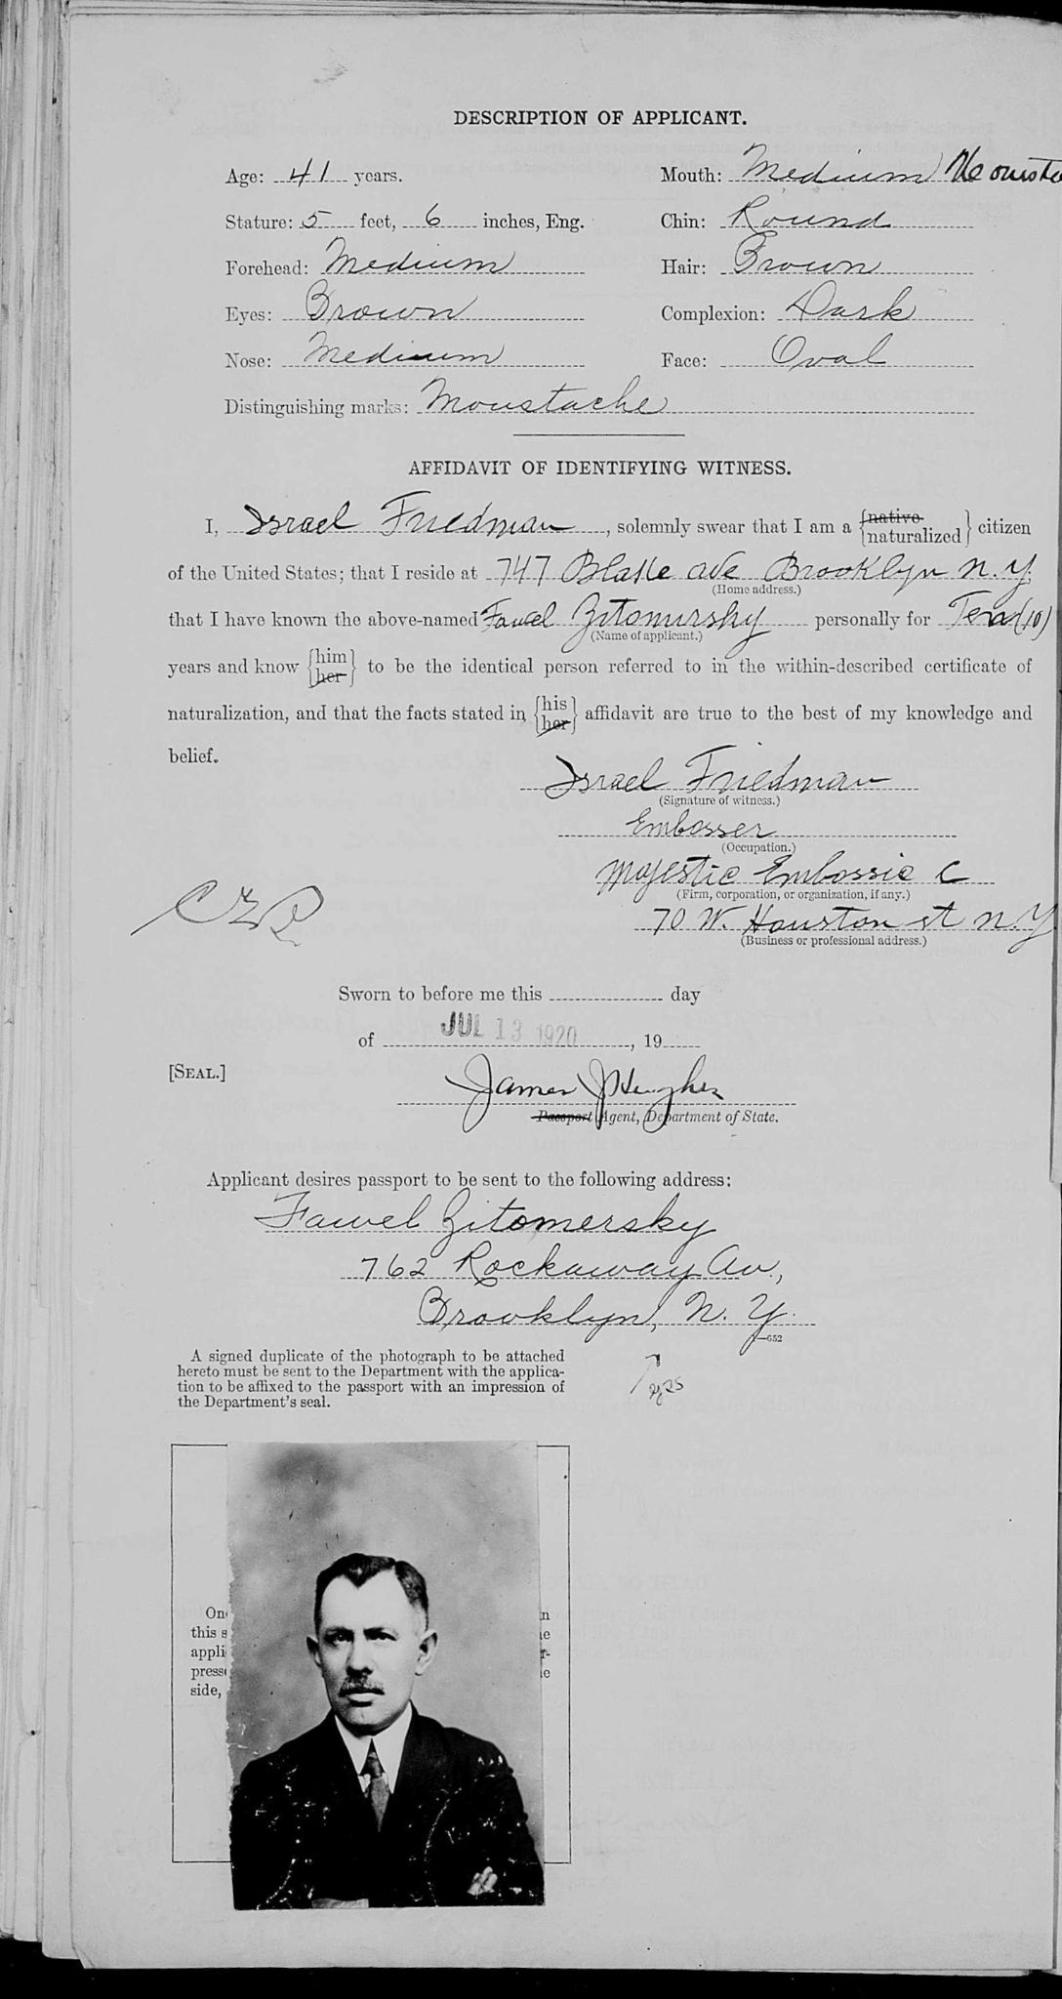 DESCRIPTION OF APPLICANT.
Age: 41 years. Mouth: Medium
Stature: 5 feet, 6 inches, Eng. Chin: Round
Forehead: Medium Hair: Brown
Eyes: Brown Complexion: Dark
Nose: Medium Face: Oval
Distinguishing marks: Moustache
AFFIDAVIT OF IDENTIFYING WITNESS.
I, Israel Friedman, solemnly swear that I am a {native naturalized} citizen
of the United States; that I reside at 747 Blake ave Brooklyn N.Y.
(Home address.)
that I have known the above-named Fawel Zitomersky personally for Ten (10)
(Name of applicant.)
years and know {him her} to be the identical person referred to in the within-described certificate of
naturalization, and that the facts stated in {his her} affidavit are true to the best of my knowledge and
belief.
Israel Friedman
(Signature of witness.)
Embosser
(Occupation.)
Majestic Embossie C
(Firm, corporation, or organization, if any.)
70 W. Houston st N.Y
(Business or professional address.)
Sworn to before me this day
of JUL 13 1920, 19
[SEAL.]
James J Hughes
Passport Agent, Department of State.
Applicant desires passport to be sent to the following address:
Fawel Zitomersky
762 Rockaway Av.,
Brooklyn, N. Y.
—652
A signed duplicate of the photograph to be attached
hereto must be sent to the Department with the applica-
tion to be affixed to the passport with an impression of
the Department's seal.
On
this s
appli
press
side,